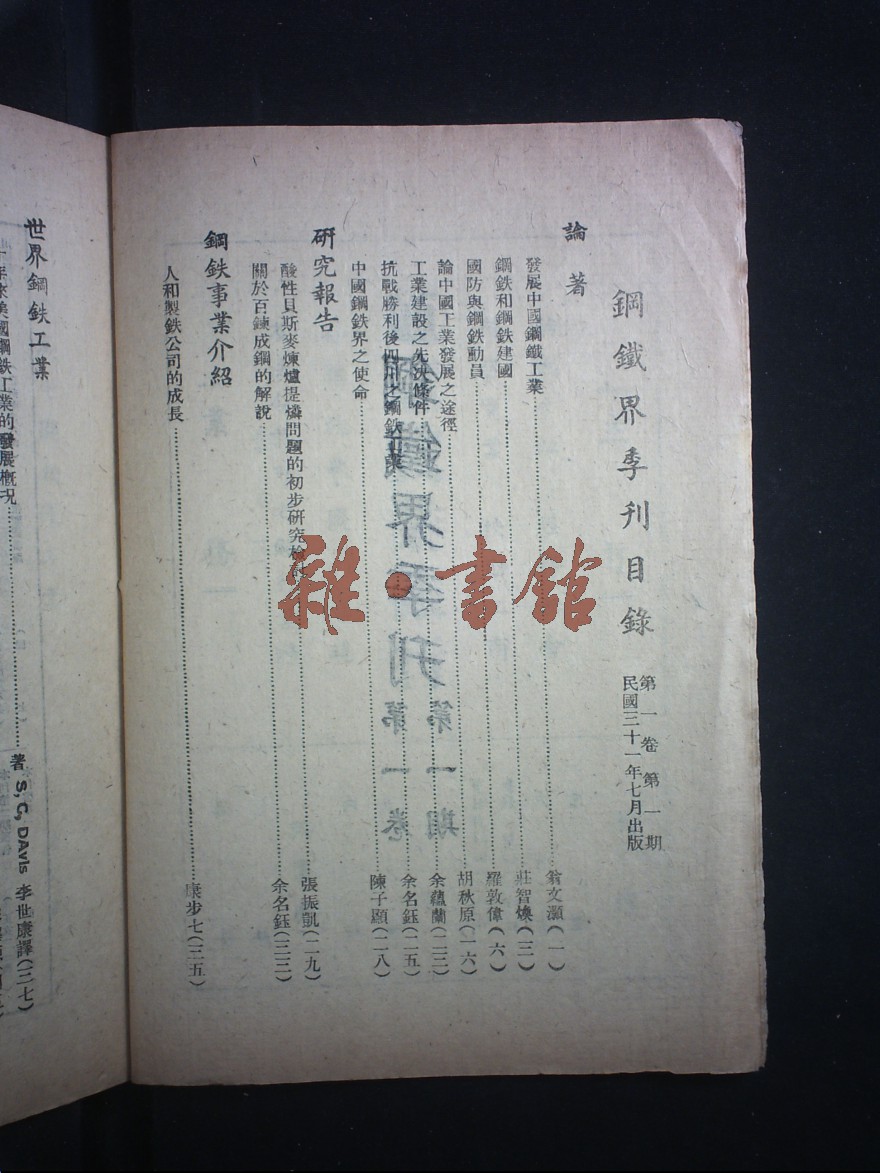 鋼鐵界季刊目錄
第一卷第一期
民國三十一年七月出版
論著
發展中國鋼鐵工業 翁文灝(一)
鋼鉄和鋼鉄建國 莊智煥(三)
國防與鋼鉄動員 羅敦偉(六)
論中國工業發展之途徑 胡秋原(一六)
工業建設之先決條件 余蘊蘭(二三)
抗戰勝利後四川之鋼鉄工業 余名鈺(二五)
中國鋼鉄界之使命 陳子顯(二八)
研究報告
酸性貝斯麥煉爐提燐問題的初步研究 張振凱(二九)
關於百鍊成鋼的解說 余名鈺(三三)
鋼鉄事業介紹
人和製鉄公司的成長 康步七(三五)
世界鋼鉄工業
十年來美國鋼鉄工業的發展概況 著 S, C, DAvis 李世康譯(三七)
雜·書舘
鋼鐵界季刊
第一卷
第一期